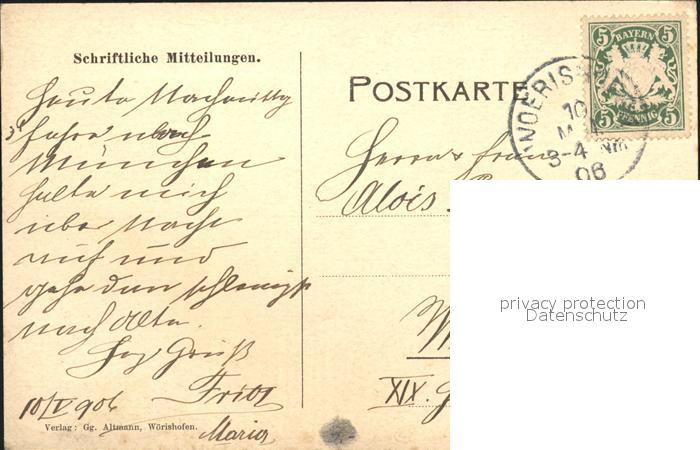 Schriftliche Mitteilungen.
Heute Nachmittg
fahre nach
München
halte mich
über Nacht
auf und
gehe dann schleunigst
nach
Hzg Gruß
Fritz
Maria
10/V 906
Verlag: Gg. Altmann, Wörishofen.
POSTKARTE
Herrn u Frau
Alois
XIX.
BAYERN
5 5
5 5
PFENNIG
WOERIS
10
3-4 Nm
06
privacy protection
Datenschutz